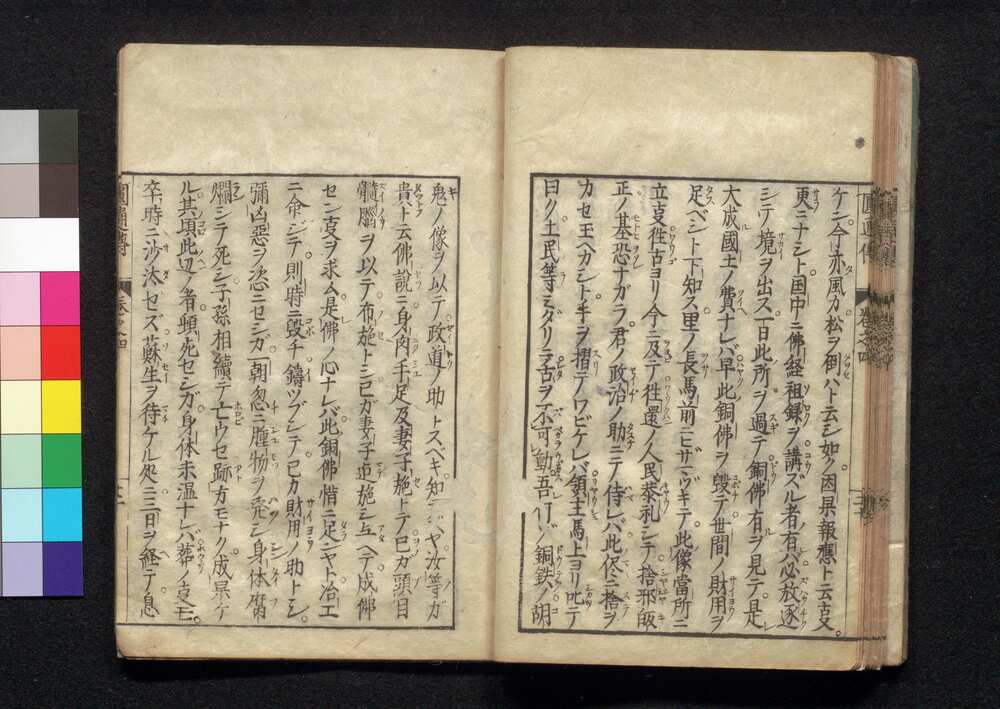 ケン今亦風カ松ヲ倒ハト云シ如ク因果報應ト云亊
更ニナシト国中ニ佛経祖録ヲ講ズル者有バ必放逐
シテ境ヲ出ス一日此所ヲ過テ銅佛有ヲ見テ是
大成國土ノ費ナレバ早此銅佛ヲ毀テ世間ノ財用ヲ
足ベシト下知ス里ノ長馬前ニヒザマヅキテ此像當所ニ
立亊往古ヨリ今ニ及テ往還ノ人民恭礼シテ捨邪皈
正ノ基恐ナガラ君ノ政治ノ助ニテ侍レバ此侭ニ捨ヲ
カセ玉ヘカシト手ヲ摺テワビケレバ領主馬上ヨリ叱テ
曰ク土民等ミダリニ舌ヲ不可動吾何ノ銅鉄ノ胡
鬼ノ像ヲ以テ政道ノ助トスベキ知ズヤ汝等ガ
貴ト云佛説ニ身肉手足及妻子施トテ己カ頭目
髓腦ヲ以テ布施トシ己ガ妻子迠施シ与ヘテ成佛
セン亊ヲ求ム是佛ノ心ナレバ此銅佛惜ニ足ンヤト冶工
ニ命ジテ則時ニ毀チ鑄ツブシテ己カ財用ノ助トシ
彌凶惡ヲ恣ニセシガ一朝忽ニ腫物ヲ発シ身体腐
爛シテ死シ子孫相續テ亡ウセ跡方モナク成果ケ
ル其頃此辺ノ者頓死セシガ身体未温ナレバ葬ノ亊モ
卒時ニ沙汰セズ蘇生ヲ待ケル処ニ三日ヲ経テ息
圓通傳
巻之四